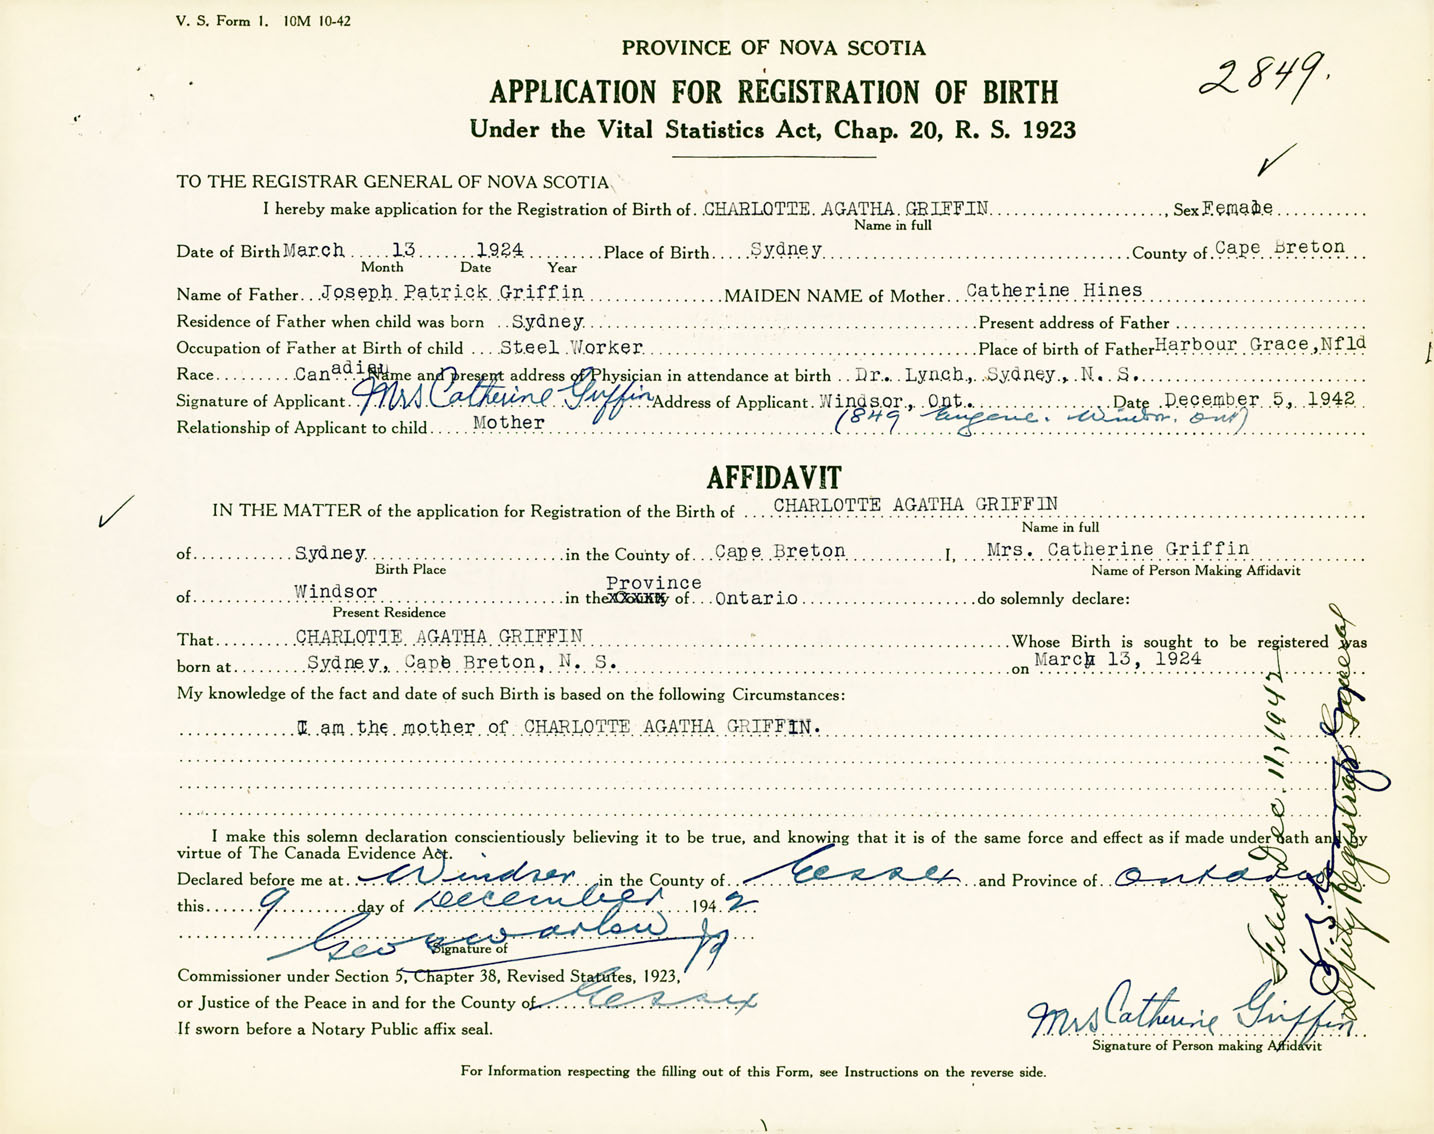 V. S. Form 1. 10M 10-42
PROVINCE OF NOVA SCOTIA
2849.
APPLICATION FOR REGISTRATION OF BIRTH
Under the Vital Statistics Act, Chap. 20, R. S. 1923
TO THE REGISTRAR GENERAL OF NOVA SCOTIA
I hereby make application for the Registration of Birth of CHARLOTTE AGATHA GRIFFIN, Sex Female
Name in full
Date of Birth March 13 1924 Place of Birth Sydney County of Cape Breton
Month Date Year
Name of Father Joseph Patrick Griffin MAIDEN NAME of Mother Catherine Hines
Residence of Father when child was born Sydney Present address of Father
Occupation of Father at Birth of child Steel Worker Place of birth of Father Harbour Grace, Nfld
Race Canadian Name and present address of Physician in attendance at birth Dr. Lynch, Sydney, N. S.
Signature of Applicant Mrs Catherine Griffin Address of Applicant Windsor, Ont. Date December 5, 1942
Relationship of Applicant to child Mother (849 Eugene. Windsor. Ont)
AFFIDAVIT
IN THE MATTER of the application for Registration of the Birth of CHARLOTTE AGATHA GRIFFIN
Name in full
of Sydney in the County of Cape Breton I, Mrs. Catherine Griffin
Birth Place Name of Person Making Affidavit
Province
of Windsor in the County of Ontario do solemnly declare:
Present Residence
That CHARLOTTE AGATHA GRIFFIN Whose Birth is sought to be registered was
born at Sydney, Cape Breton, N. S. on March 13, 1924
My knowledge of the fact and date of such Birth is based on the following Circumstances:
I am the mother of CHARLOTTE AGATHA GRIFFIN.
I make this solemn declaration conscientiously believing it to be true, and knowing that it is of the same force and effect as if made under oath and by
virtue of The Canada Evidence Act.
Declared before me at Windsor in the County of Essex and Province of Ontario
this 9 day of December 1942
Signature of
Commissioner under Section 5, Chapter 38, Revised Statutes, 1923,
or Justice of the Peace in and for the County of Essex
If sworn before a Notary Public affix seal.
Mrs Catherine Griffin
Signature of Person making Affidavit
For Information respecting the filling out of this Form, see Instructions on the reverse side.
Filed Dec. 11, 1942
Deputy Registrar General